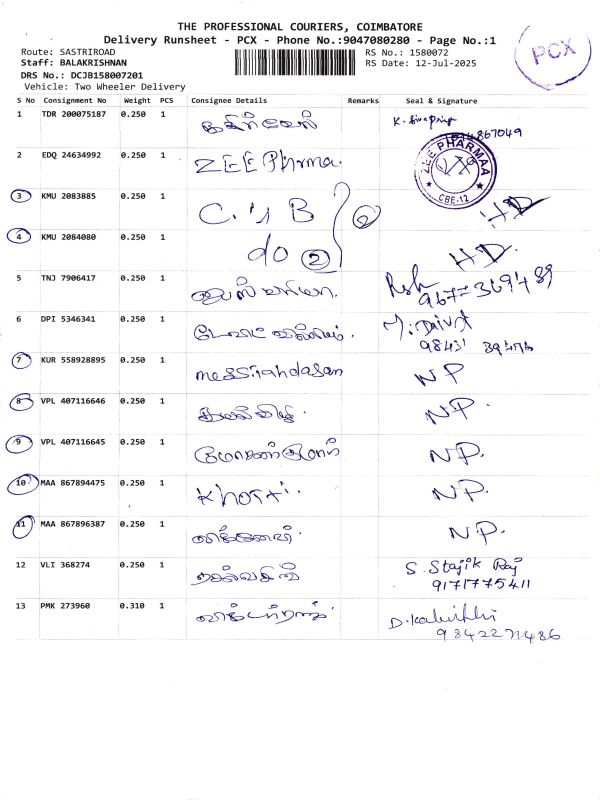 THE PROFESSIONAL COURIERS, COIMBATORE
Delivery Runsheet - PCX - Phone No.:9047080280 - Page No.:1
Route: SASTRIROAD
RS No.: 1580072
Staff: BALAKRISHNAN
RS Date: 12-Jul-2025
DRS No.: DCJB158007201
Vehicle: Two Wheeler Delivery
PCX
S No Consignment No Weight PCS Consignee Details Remarks Seal & Signature
1 TDR 200075187 0.250 1
2 EDQ 24634992 0.250 1 ZEE Pharma.
ZEE PHARMAA
CBE-12
3 KMU 2083885 0.250 1 C.'s B 2 HD
4 KMU 2084080 0.250 1 do 2 HD.
5 TNJ 7906417 0.250 1
6 DPI 5346341 0.250 1
7 KUR 558928895 0.250 1 messiahdasan NP
8 VPL 407116646 0.250 1 NP.
9 VPL 407116645 0.250 1 NP.
10 MAA 867894475 0.250 1 NP.
11 MAA 867896387 0.250 1 NP.
12 VLI 368274 0.250 1 S. Stajik Raj
9171775411
13 PMK 273960 0.310 1
9342271486